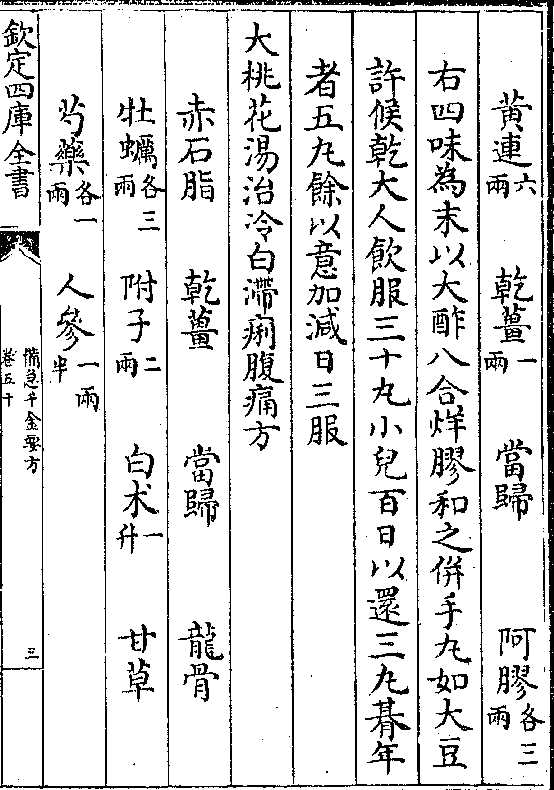 黃連六兩　乾薑一兩　當歸　阿膠各三兩
右四味為末以大酢八合烊膠和之併手丸如大豆
許候乾大人飲服三十丸小兒百日以還三丸朞年
者五丸餘以意加減日三服
大桃花湯治冷白滯痢腹痛方
赤石脂　乾薑　當歸　龍骨
牡蠣各三兩　附子二兩　白术一升　甘草
芍藥各一兩　人參一兩半
欽定四庫全書
備急千金要方
卷五十
三